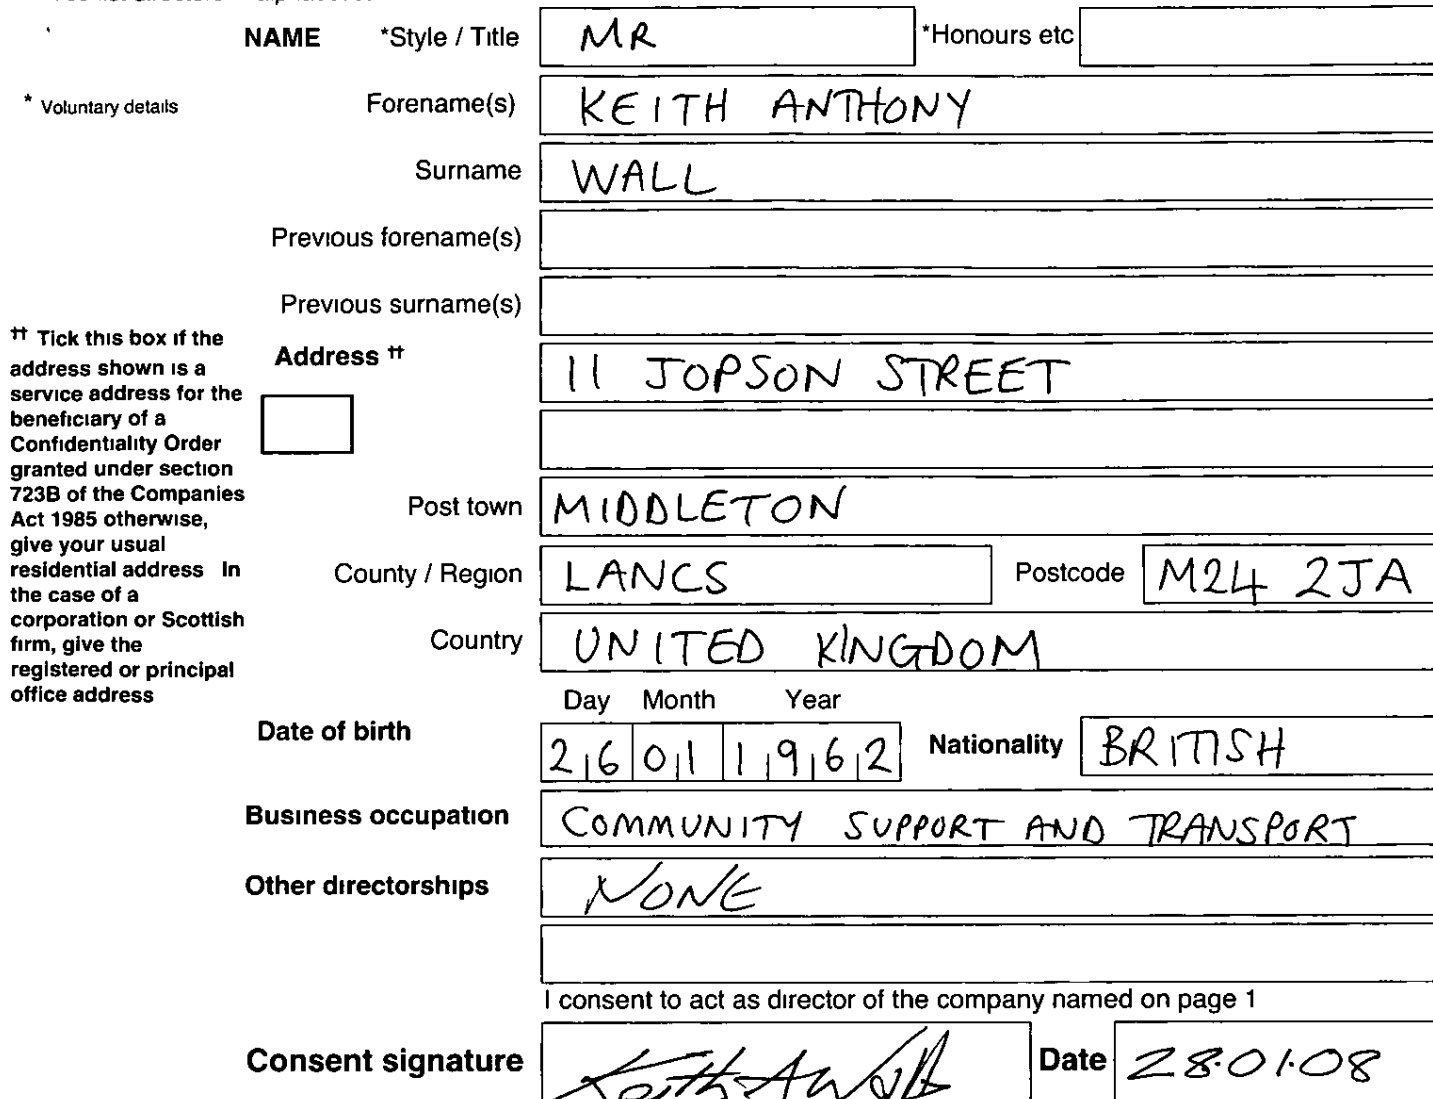 NAME *Style / Title MR *Honours etc
* Voluntary details Forename(s) KEITH ANTHONY
Surname WALL
Previous forename(s)
Previous surname(s)
†† Tick this box if the
address shown is a
service address for the
beneficiary of a
Confidentiality Order
granted under section
723B of the Companies
Act 1985 otherwise,
give your usual
residential address In
the case of a
corporation or Scottish
firm, give the
registered or principal
office address
Address †† 11 JOPSON STREET
Post town MIDDLETON
County / Region LANCS Postcode M24 2JA
Country UNITED KINGDOM
Day Month Year
Date of birth 26 01 1962 Nationality BRITISH
Business occupation COMMUNITY SUPPORT AND TRANSPORT
Other directorships NONE
I consent to act as director of the company named on page 1
Consent signature Keith A Wall Date 28.01.08